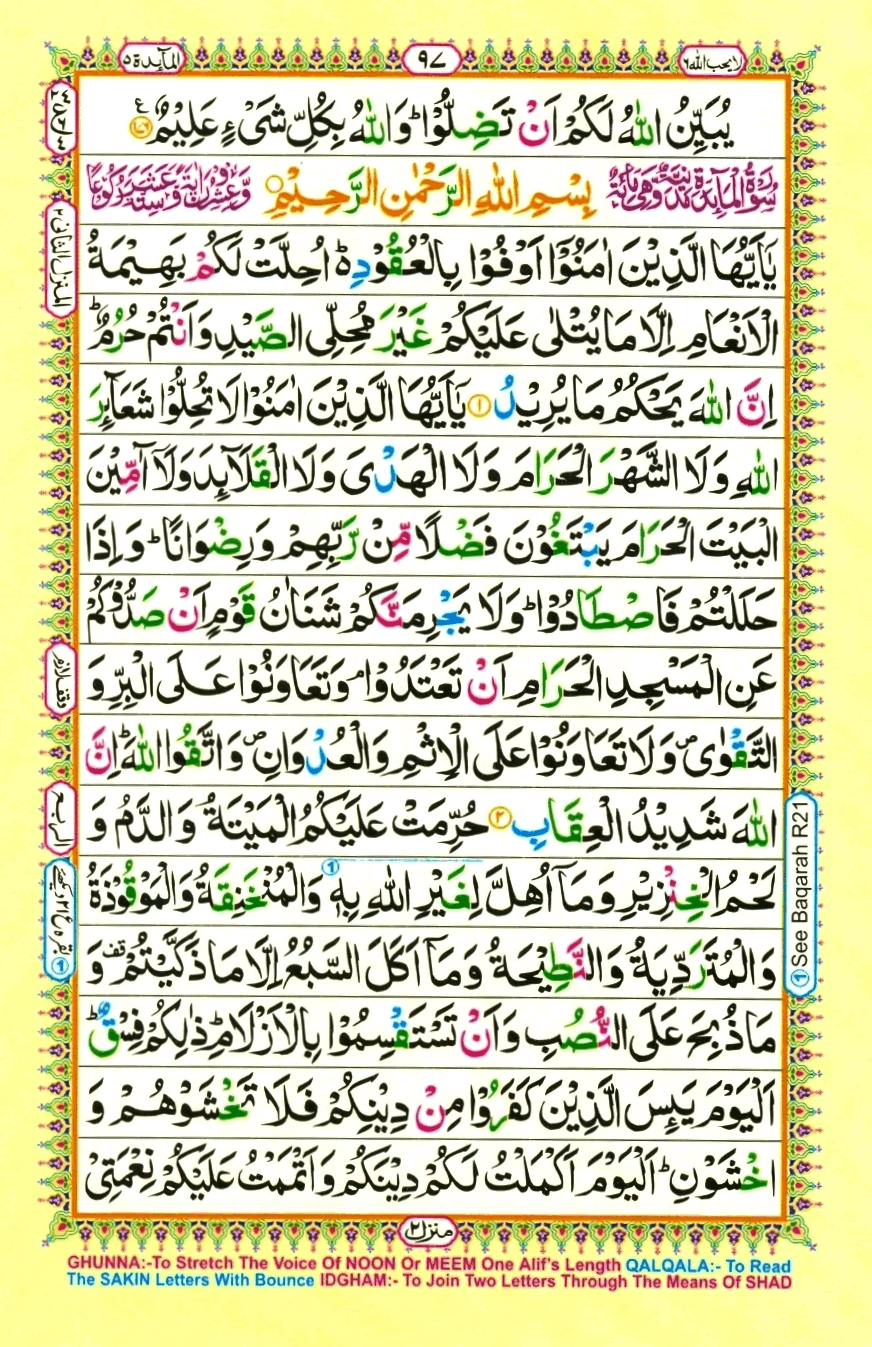 لا یحب الله ۶
۹۷
المآئدة ۵
یُبَیِّنُ اللهُ لَکُمْ اَنْ تَضِلُّوْا ؕ وَاللهُ بِکُلِّ شَیْءٍ عَلِیْمٌ ﴿۱۷۶﴾
سُوْرَةُ الْمَآئِدَةِ مَدَنِیَّةٌ وَّهِیَ مِائَةٌ
بِسْمِ اللهِ الرَّحْمٰنِ الرَّحِیْمِ
وَّعِشْرُوْنَ اٰیَةً وَّسِتَّةَ عَشَرَ رُکُوْعًا
یٰۤاَیُّهَا الَّذِیْنَ اٰمَنُوْۤا اَوْفُوْا بِالْعُقُوْدِ ؕ۬ اُحِلَّتْ لَکُمْ بَهِیْمَةُ
الْاَنْعَامِ اِلَّا مَا یُتْلٰی عَلَیْکُمْ غَیْرَ مُحِلِّی الصَّیْدِ وَاَنْتُمْ حُرُمٌ ؕ
اِنَّ اللهَ یَحْکُمُ مَا یُرِیْدُ ﴿۱﴾ یٰۤاَیُّهَا الَّذِیْنَ اٰمَنُوْا لَا تُحِلُّوْا شَعَآئِرَ
اللهِ وَلَا الشَّهْرَ الْحَرَامَ وَلَا الْهَدْیَ وَلَا الْقَلَآئِدَ وَلَاۤ آٰمِّیْنَ
الْبَیْتَ الْحَرَامَ یَبْتَغُوْنَ فَضْلًا مِّنْ رَّبِّهِمْ وَرِضْوَانًا ؕ وَاِذَا
حَلَلْتُمْ فَاصْطَادُوْا ؕ وَلَا یَجْرِمَنَّکُمْ شَنَاٰنُ قَوْمٍ اَنْ صَدُّوْکُمْ
عَنِ الْمَسْجِدِ الْحَرَامِ اَنْ تَعْتَدُوْا ۘ وَتَعَاوَنُوْا عَلَی الْبِرِّ وَ
التَّقْوٰی ۪ وَلَا تَعَاوَنُوْا عَلَی الْاِثْمِ وَالْعُدْوَانِ ۪ وَاتَّقُوا اللهَ ؕ اِنَّ
اللهَ شَدِیْدُ الْعِقَابِ ﴿۲﴾ حُرِّمَتْ عَلَیْکُمُ الْمَیْتَةُ وَالدَّمُ وَ
لَحْمُ الْخِنْزِیْرِ وَمَاۤ اُهِلَّ لِغَیْرِ اللهِ بِهٖ وَالْمُنْخَنِقَةُ وَالْمَوْقُوْذَةُ
وَالْمُتَرَدِّیَةُ وَالنَّطِیْحَةُ وَمَاۤ اَکَلَ السَّبُعُ اِلَّا مَا ذَکَّیْتُمْ ۟ وَ
مَا ذُبِحَ عَلَی النُّصُبِ وَاَنْ تَسْتَقْسِمُوْا بِالْاَزْلَامِ ؕ ذٰلِکُمْ فِسْقٌ ؕ
اَلْیَوْمَ یَئِسَ الَّذِیْنَ کَفَرُوْا مِنْ دِیْنِکُمْ فَلَا تَخْشَوْهُمْ وَ
اخْشَوْنِ ؕ اَلْیَوْمَ اَکْمَلْتُ لَکُمْ دِیْنَکُمْ وَاَتْمَمْتُ عَلَیْکُمْ نِعْمَتِیْ
المنزل الثانی ۲
وقف لازم
الربع
① See Baqarah R21
منزل ۲
GHUNNA:-To Stretch The Voice Of NOON Or MEEM One Alif's Length QALQALA:- To Read
The SAKIN Letters With Bounce IDGHAM:- To Join Two Letters Through The Means Of SHAD